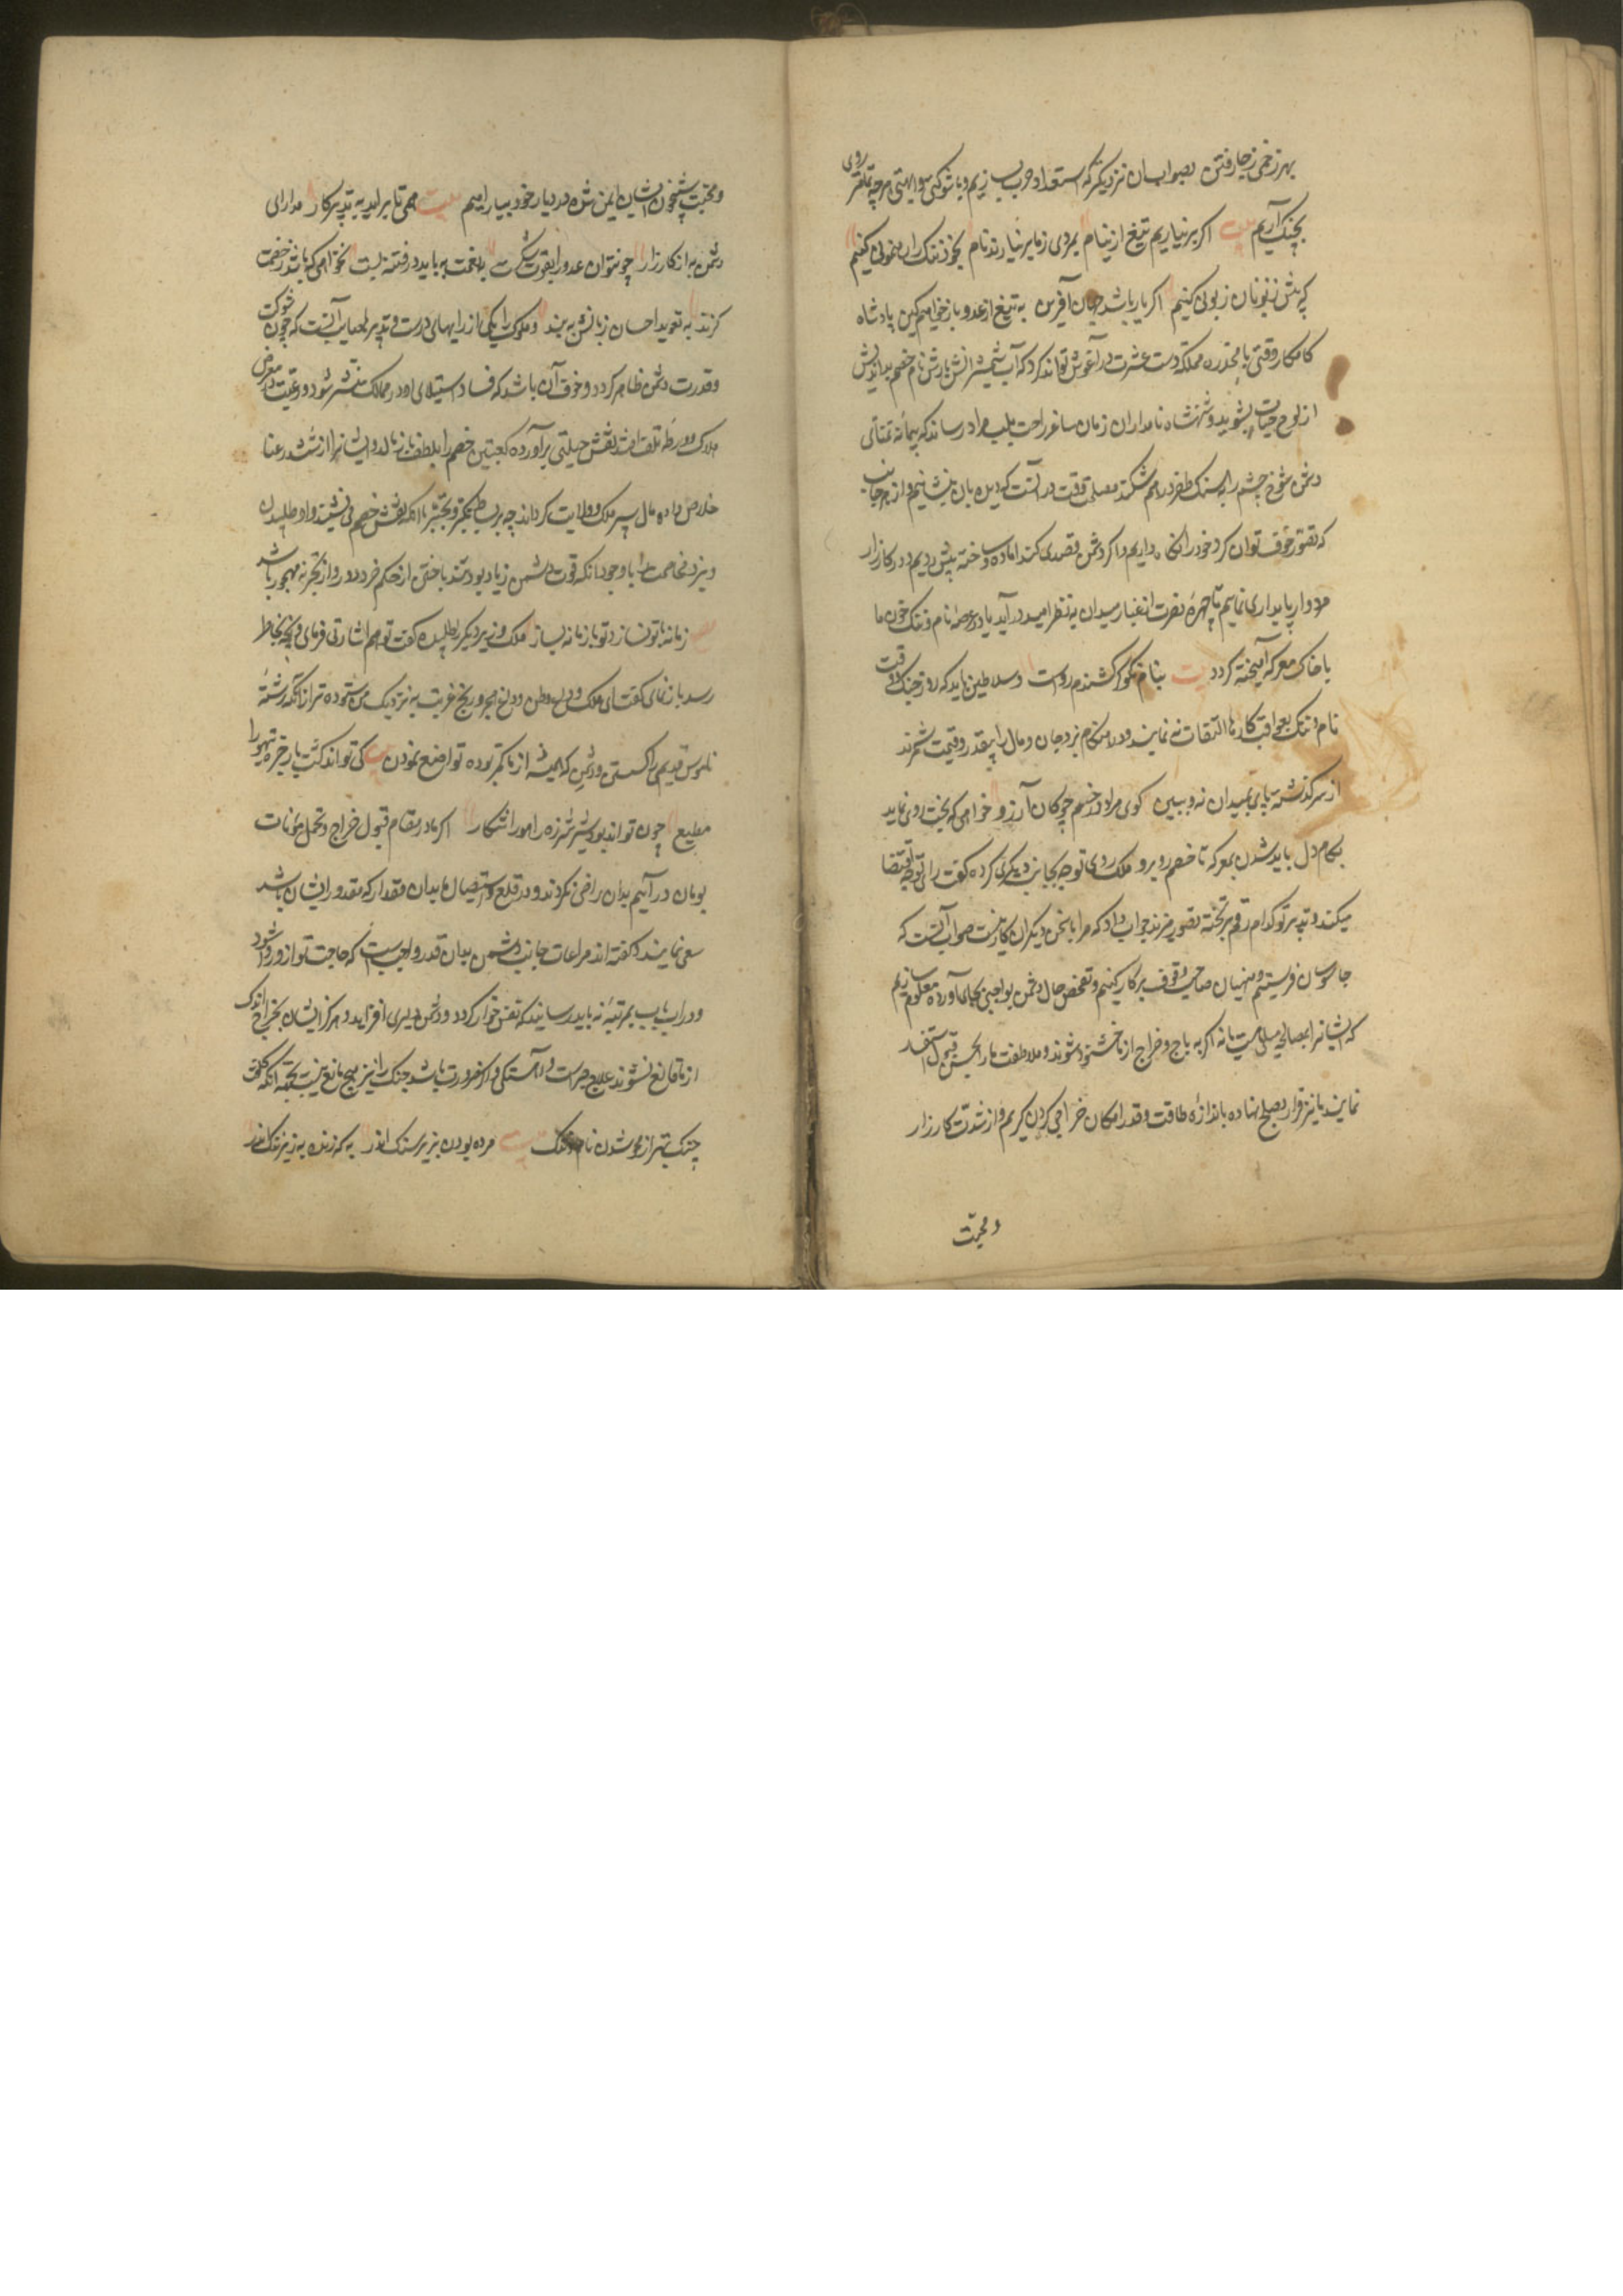 بهر زخمی ز جا رفتن بصواب آن نزدیکتر که استعداد حرب سازیم و با شوکتی و ابهتی هر چه تمامتر روی
بجنگ آریم بیت اگر برنیاریم تیغ از نیام بمردی ز ما برنیارند نام بخود ننگ را رهنمونی کنیم
که پیش زبونان زبونی کنیم اگر یار باشد جهان آفرین به تیغ از عدو باز خواهیم کین پادشاه
کامکار وقتی با مخدره مملکت دست عشرت در آغوش تواند کرد که آب شمشیر آتش بارش نام خصم بداندیش
از لوح حیات بشوید و شهنشاه نامداران زمان ساغر راحت بلب مراد رساند که پیمانه تمنای
دشمن شوخ چشم را بسنگ ظفر درهم شکند مصلحت وقت در آنست که دیده بان بنشانیم و از هر جانب
که تصور خوف توان کرد خود را نگاه داریم و اگر دشمن قصدی کند آماده و ساخته پیش رویم و در کارزار
مردوار پایداری نماییم تا چهره نصرت از غبار میدان به نظر امید در آید یا در عرصه نام و ننگ خون ما
با خاک معرکه آمیخته گردد بیت بنام نکو گر کشندم رواست و سلاطین باید که روز جنگ و وقت
نام و ننگ بعواقب کارها التفات نه نمایند و در هنگام نبرد جان و مال را بیقدر و قیمت شمرند
از سر گذشته پای بمیدان نه و ببین گوی مراد در خم چوگان آرزو خواهی که بخت روی نماید
بکام دل باید شدن بمعرکه تا خصم روبرو ملک روی توجه بجانب دیگری کرده گفت رای تو چه اقتضا
میکند و تدبیر تو کدام رقم بر تخته تصویر میزند جواب داد که مرا با سخن دیگران کار نیست صواب آنست که
جاسوسان فرستیم و منهیان صاحب وقوف بر کار کنیم و تفحص حال دشمن بواجبی بجای آورده معلوم سازیم
که ایشانرا بمصالحه میلی هست یا نه اگر به باج و خراج از ما خشنود شوند و ملاطفت ما را بحسن قبول استقبال
نمایند ما نیز قرار بصلح نهاده باندازه طاقت و قدر امکان خراجی گردن گیریم و از شدت کارزار
و محنت
و محنت شبیخون ایشان ایمن شده در دیار خود بیارامیم بیت همی تا برآید به تدبیر کار مدارای
دشمن به از کارزار چو نتوان عدو را بقوت شکست به نعمت بباید در فتنه بست نخواهی که باشد ز خصمت
گزند به تعویذ احسان زبانش به بند و ملوک را یکی از رایهای درست و تدبیر بصواب آنست که چون شوکت
و قدرت دشمن ظاهر گردد و خوف آن باشد که فساد استیلای او در ممالک منتشر شود و رعیت در معرض
هلاک و ورطه تلف افتند نقش حیلتی برآورده کعبتین خصم را بلطف باز مالد و ایشانرا از ششدر عنا
خلاص داده مال سپر ملک و ولایت گرداند چه بر بساط تکبر و تجبر با آنکه نقش خصم می نشیند داو طلبیدن
و نرد مخاصمت را با وجود آنکه قوت دشمن زیاد بود مند باختن از حکم خرد دور و از تجربه مهجور باشد
مصرع زمانه با تو نسازد تو با زمانه بساز ملک وزیر دیگر را طلبیده گفت تو هم اشارتی فرمای و آنچه بخاطر
رسد باز نمای گفت ای ملک وداع وطن و داغ هجر و رنج غربت به نزدیک من ستوده تر از آنکه رشته
ناموس قدیمی را گسستن و دشمن که همیشه از ما کمتر بوده تواضع نمودن بیت کی تواند گشت باز جره تیهو را
مطیع چون تواند بود شیر شرزه رام شکار اگر ما در مقام قبول خراج و تحمل مونات
بومان در آییم بدان راضی نگردند و در قلع و استیصال ما بدان مقدار که مقدور ایشان باشد
سعی نمایند و گفته اند مراعات جانب دشمن بدان قدر واجبست که حاجت تو از وی روا شود
و در آن باب بمرتبه نباید رسانید که نفس خوار گردد و دشمن دلیری افزاید و هرگز ایشان بخراج اندک
از ما قانع نشوند علاج صبر است و آهستگی و اگر ضرورت باشد جنگ را نیز هیچ مانع نیست بجهت آنکه کلفت
جنگ بهتر از محو شدن نام و ننگ بیت مرده بودن بزیر سنگ اندر به که زنده به زیر ننگ اندر